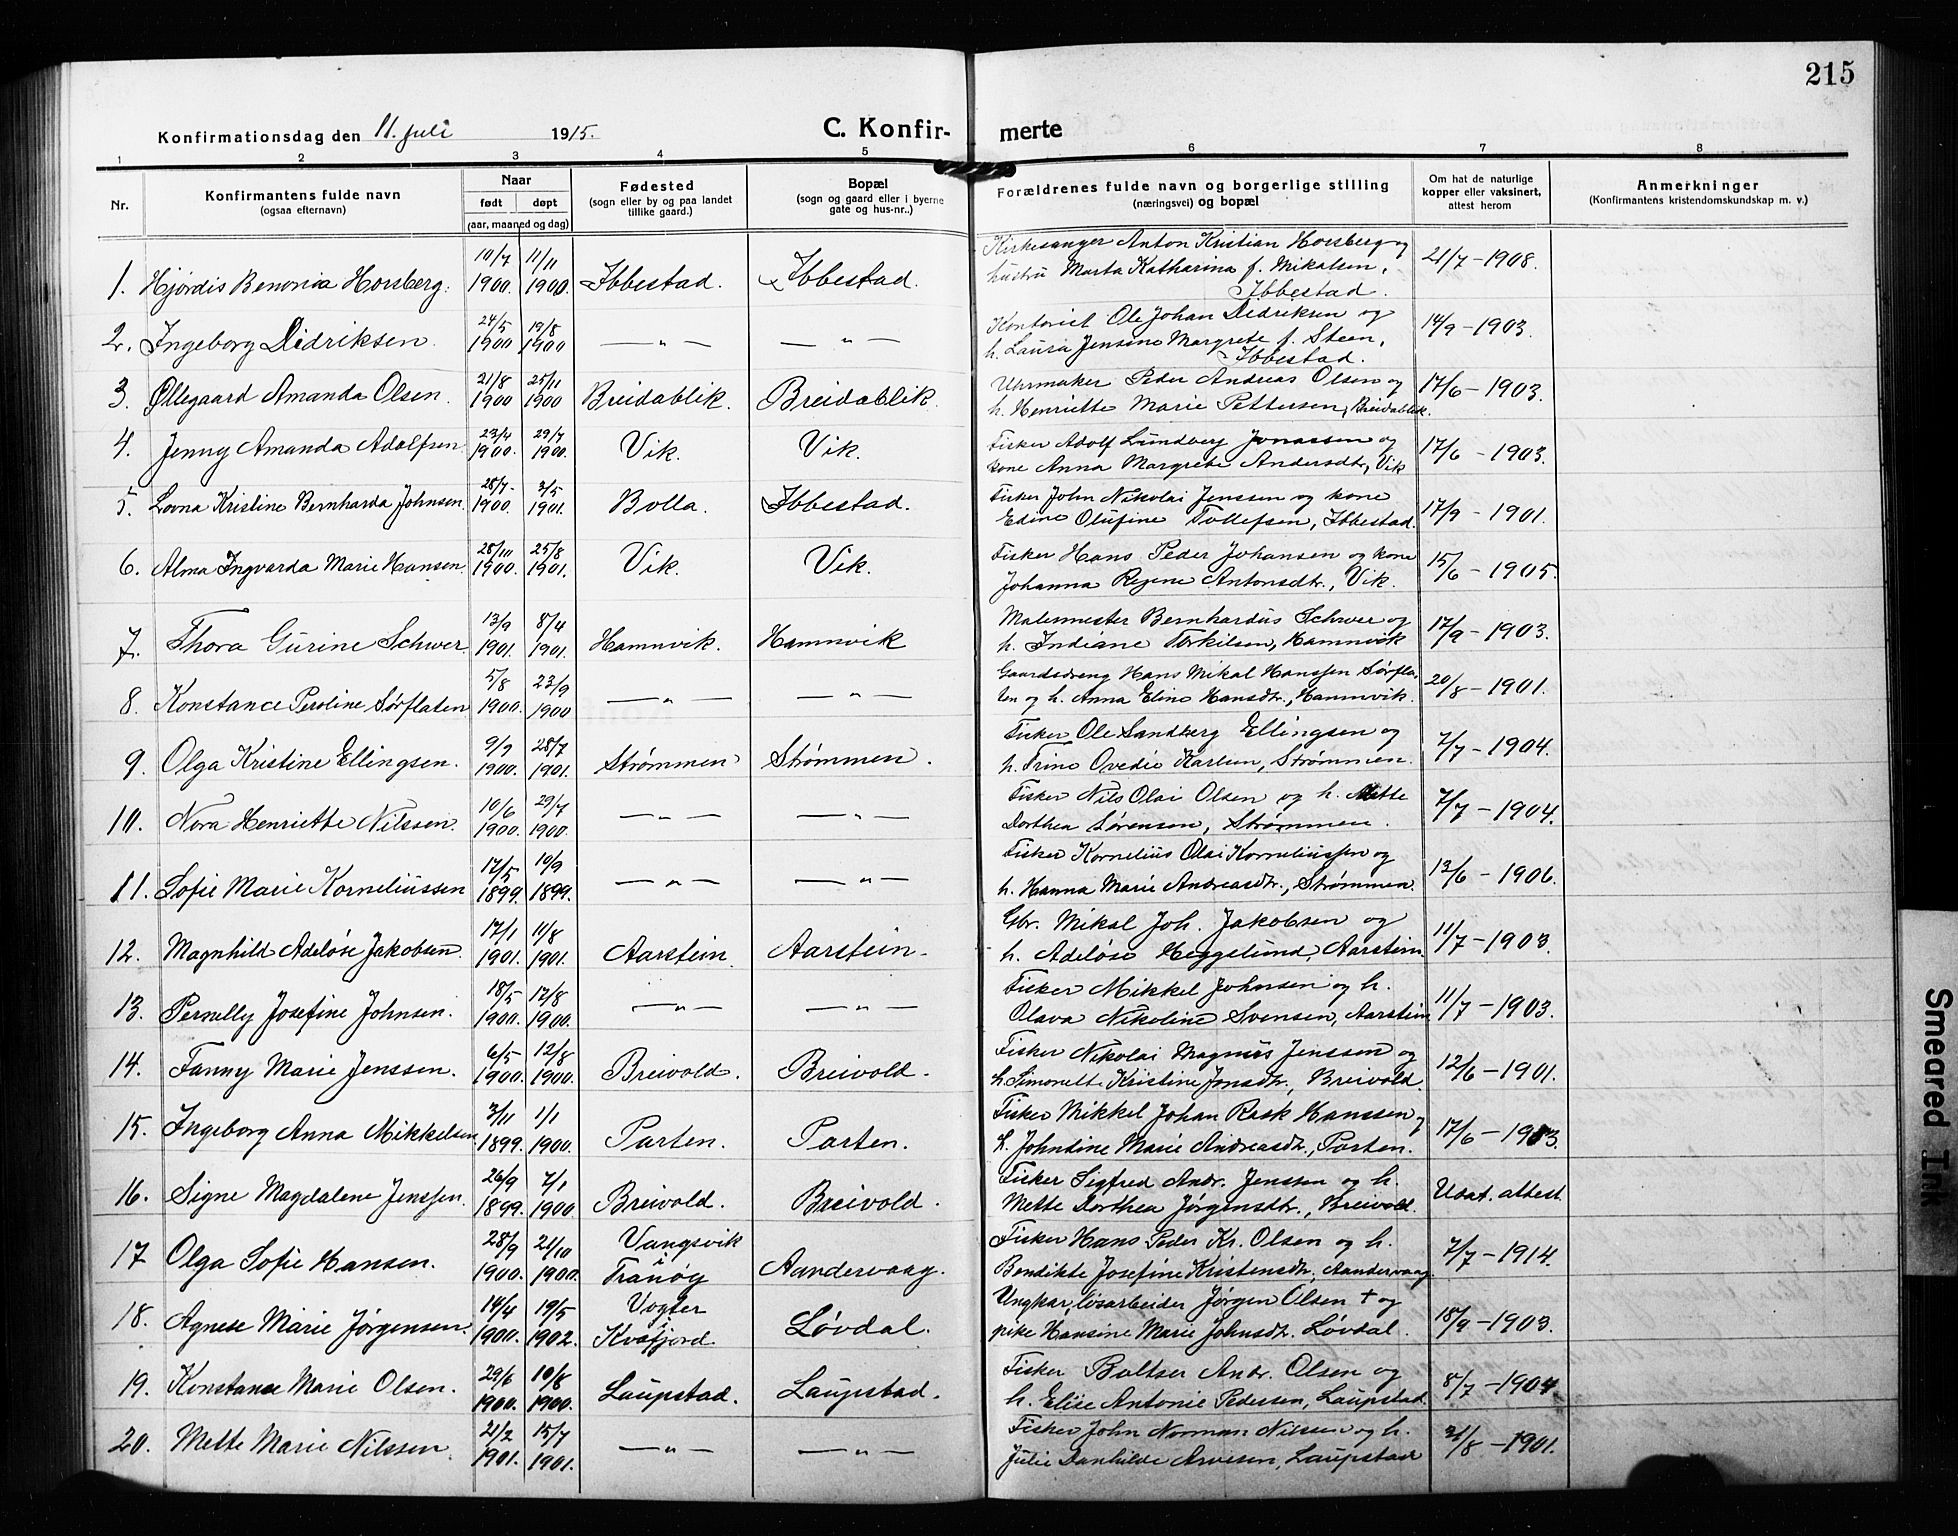 215
Konfirmationsdag den 11. juli 1915. C. Konfir- merte
1 2 3 4 5 6 7 8
Nr. Konfirmantens fulde navn (ogsaa efternavn) Naar født døpt (aar, maaned og dag) Fødested (sogn eller by og paa landet tillike gaard.) Bopæl (sogn og gaard eller i byerne gate og hus-nr..) Forældrenes fulde navn og borgerlige stilling (næringsvei) og bopæl Om hat de naturlige kopper eller vaksinert, attest herom Anmerkninger (Konfirmantens kristendomskundskap m. v.)
1. Hjørdis Benonia Horsberg. 10/7 1900. 11/11 1900 Ibbestad. Ibbestad. Kirkesanger Anton Kristian Horsberg og 21/7 - 1908.
hustru Marta Katharina f. Mikalsen,
Ibbestad.
2. Ingeborg Didriksen. 24/5 1900 19/8 1900 — " — — " — Kontorist Ole Johan Didriksen og 14/9 - 1903.
h. Laura Jensine Margrete f. Steen,
Ibbestad.
3. Øllegaard Amanda Olsen. 21/8 1900 25/11 1900 Breidablik. Breidablik. Uhrmaker Peder Andreas Olsen og 17/6 - 1903.
h. Henriette Marie Pettersen, Breidablik.
4. Jenny Amanda Adolfsen 23/4 1900. 29/7 1900. Vik. Vik. Fisker Adolf Lundberg Jonassen og 17/6 - 1903.
kone Anna Margrete Andersdtr, Vik
5. Lovna Kristine Bernharda Johnsen. 28/7 1900. 3/5 1901. Bolla. Ibbestad. Fisker John Nikolai Jenssen og kone 17/9 - 1901.
Edine Olufine Tollefsen, Ibbestad.
6. Alma Ingvarda Marie Hansen. 28/10 1900. 25/8 1901. Vik. Vik. Fisker Hans Peder Johansen og kone 15/6 - 1905.
Johanna Regine Antonsdtr., Vik.
7. Thora Gurine Schwer. 13/9 1901. 8/4 1901. Hamnvik. Hamnvik Malermester Bernhardus Schwer og 17/9 - 1903.
h. Indiane Torkilsen, Hamnvik
8. Konstance Peroline Sørflaten 5/8 1900. 23/9 1900 — " — — " — Gaardsdreng Hans Mikal Hanssen Sørfla- 20/8 - 1901.
ten og h. Anna Eline Hansdtr., Hamnvik.
9. Olga Kristine Ellingsen. 9/7 1900. 28/7 1901. Strømmen Strømmen. Fisker Ole Sandberg Ellingsen og 7/7 - 1904.
h. Trine Ovedie Karlsen, Strømmen.
10. Nora Henriette Nilssen. 10/6 1900. 29/7 1900. — " — — " — Fisker Nils Olai Olsen og h. Mette 7/7 - 1904.
Dorthea Sørensen, Strømmen.
11. Sofie Marie Korneliussen 17/5 1899. 10/9 1899. — " — — " — Fisker Kornelius Olai Korneliussen og 13/6 - 1906.
h. Hanna Marie Andreasdtr., Strømmen.
12. Magnhild Adeløse Jakobsen. 17/1 1901. 11/8 1901. Aarstein. Aarstein. Gbr. Mikal Joh. Jakobsen og 11/7 - 1903.
h. Adeløse Heggelund, Aarstein.
13. Pernelly Josefine Johnsen. 18/5 1900. 12/8 1900. — " — — " — Fisker Mikkel Johnsen og h. 11/7 - 1903.
Olava Nikoline Svensen, Aarstein
14. Fanny Marie Jenssen. 6/5 1900. 12/8 1900. Breivold. Breivold. Fisker Nikolai Magnus Jenssen og 12/6 - 1901.
h. Simonette Kristine Jonsdtr, Breivold.
15. Ingeborg Anna Mikkelsen 3/11 1899. 1/1 1900. Parten. Parten. Fisker Mikkel Johan Rask Hanssen og 17/6 - 1903.
h. Johntine Marie Andreasdtr., Parten.
16. Signe Magdalene Jenssen. 26/9 1899. 7/1 1900 Breivold. Breivold. Fisker Sigfred Andr. Jenssen og h. Udat. attest
Mette Dorthea Jørgensdtr., Breivold.
17 Olga Sofie Hansen. 28/9 1900. 21/10 1900. Vangsvik i Tranøy Aandervaag. Fisker Hans Peder Kr. Olsen og h. 7/7 - 1914.
Bendikte Josefine Kristensdtr, Aandervaag.
18. Agnese Marie Jørgensen. 14/4 1900. 19/5 1902. Vogter i Kvæfjord. Løvdal. Ungkar, løsarbeider Jørgen Olsen + og 18/9 - 1903.
pike Hansine Marie Johnsdtr. Løvdal.
19. Konstanse Marie Olsen. 29/6 1900. 10/8 1900. Laupstad. Laupstad. Fisker Baltser Andr. Olsen og 8/7 - 1904
h. Elise Antonie Pedersen, Laupstad.
20. Mette Marie Nilssen. 21/2 1901. 15/7 1901. — " — — " — Fisker John Norman Nilssen og h. 21/8 - 1901.
Julie Danhilde Arvesen, Laupstad
Smeared Ink